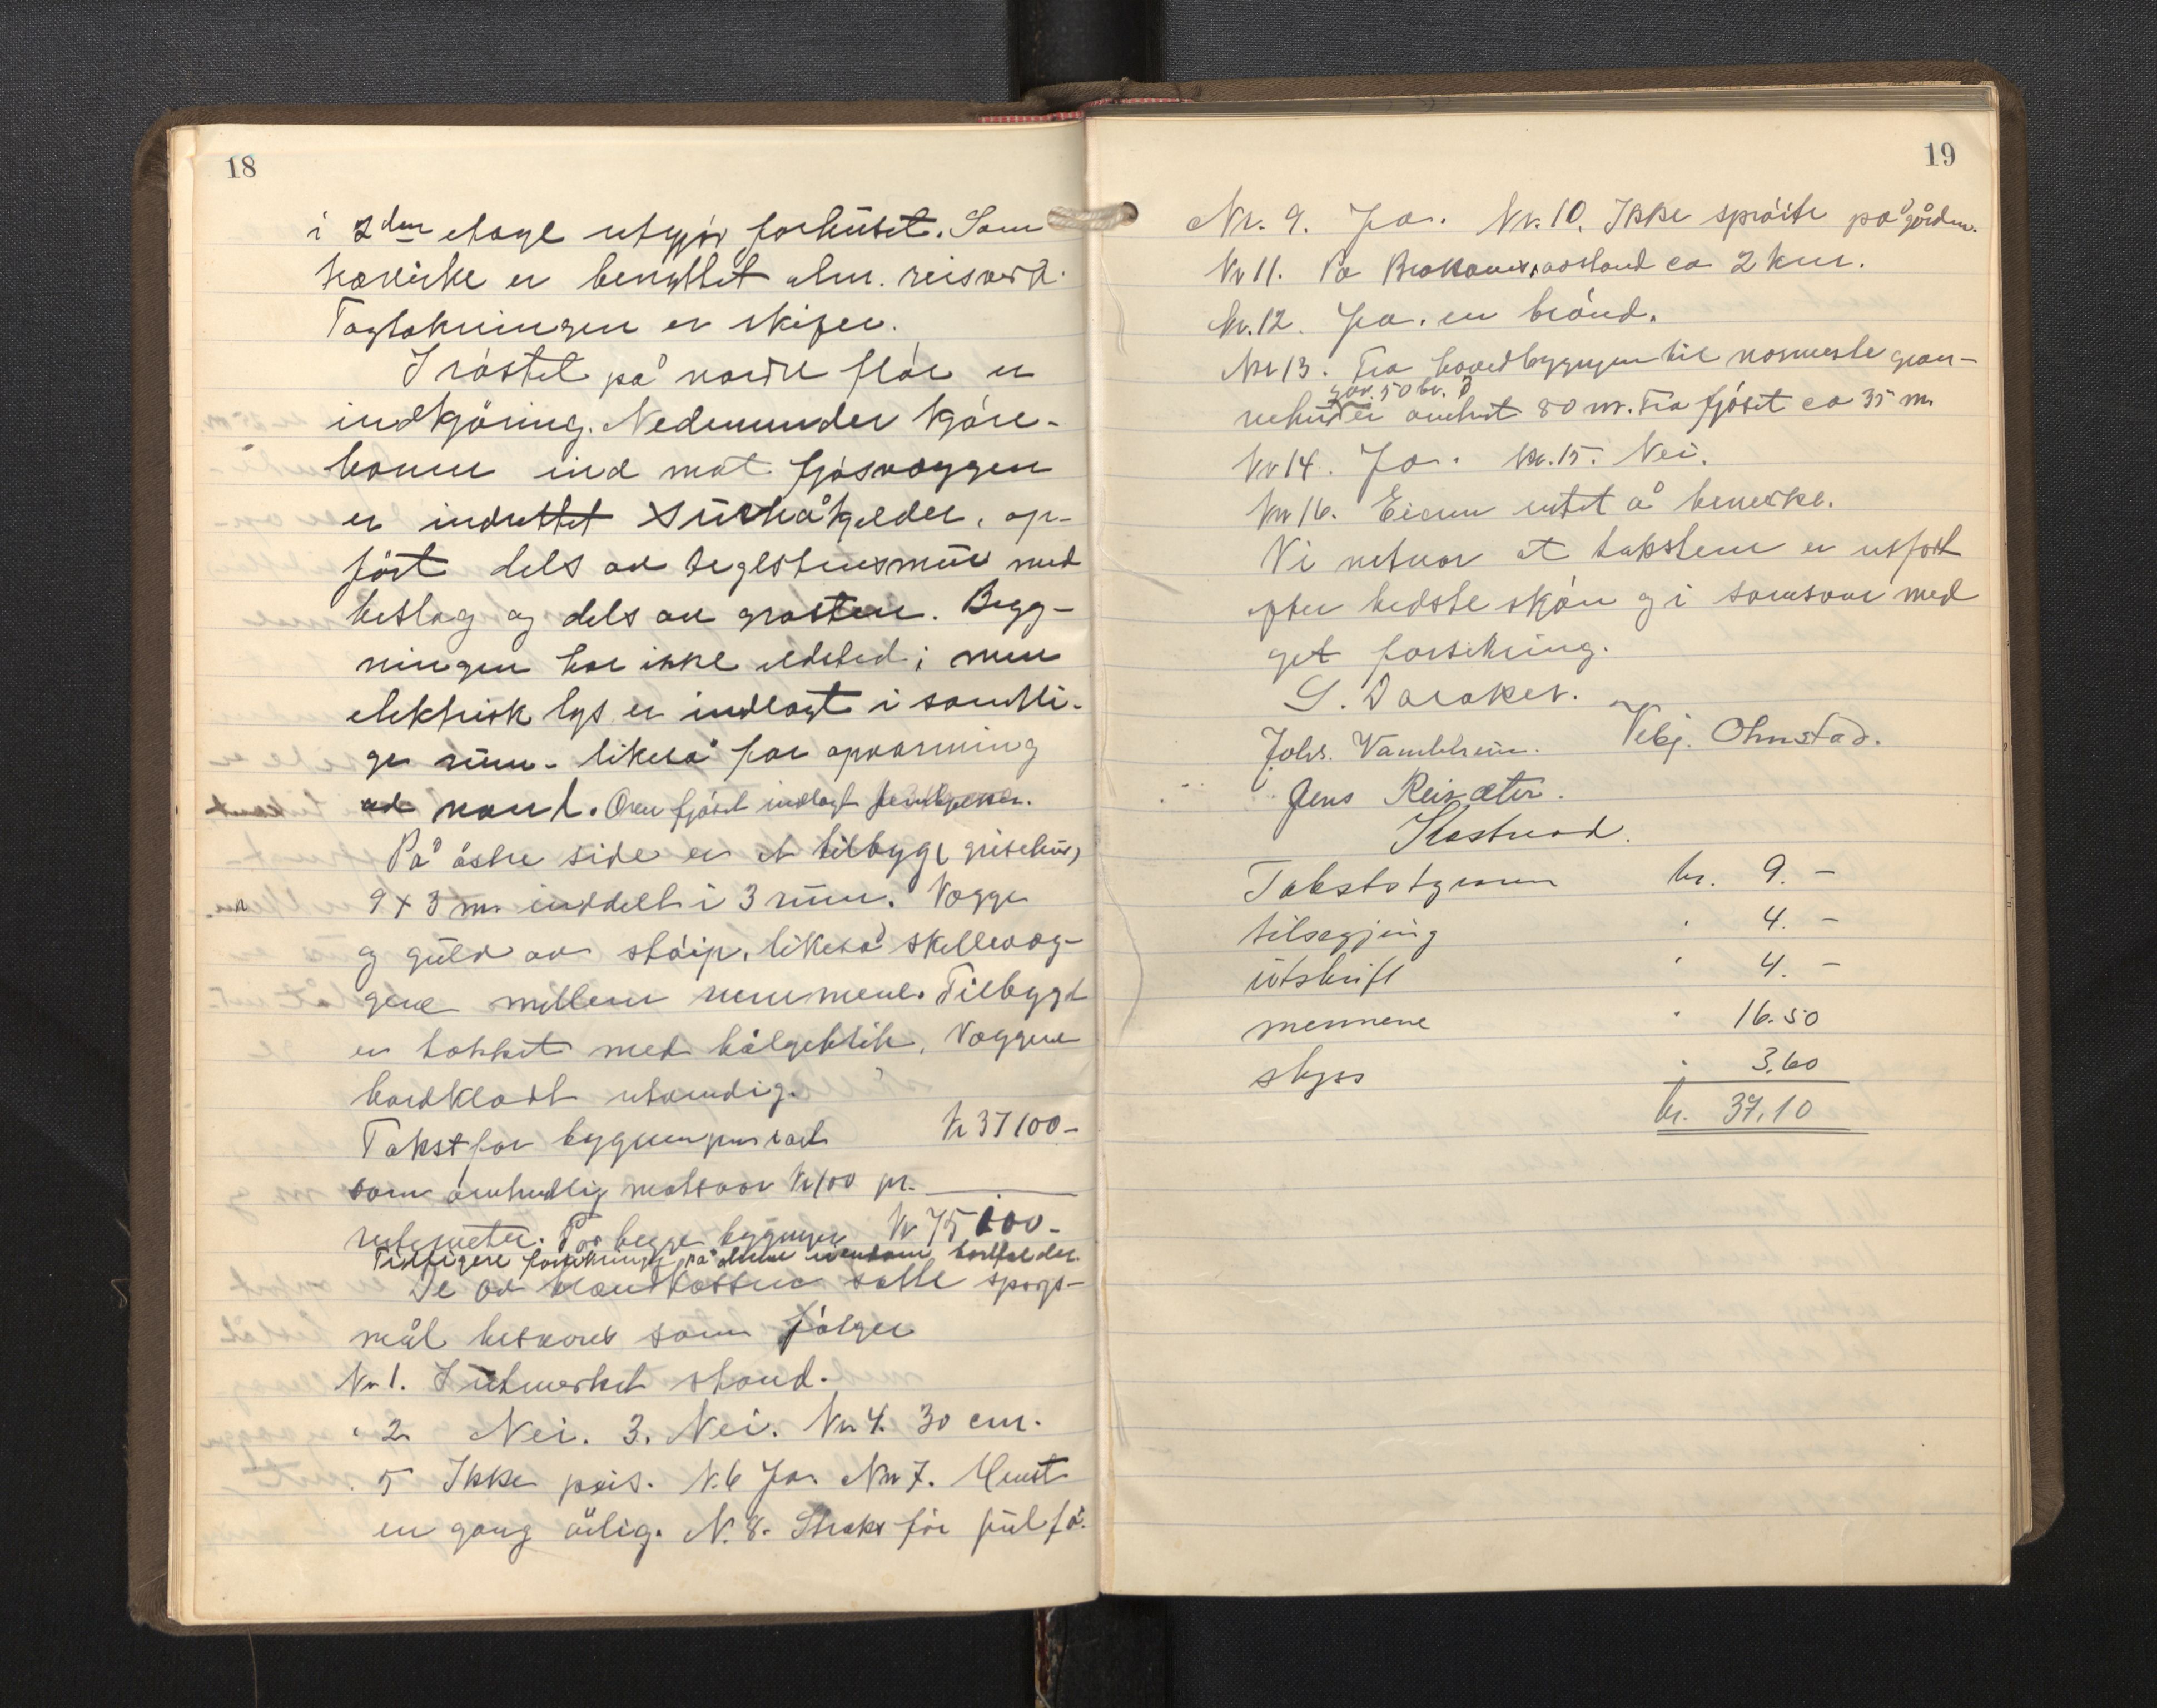 18
i 2den etage utgjør forhuset. Som
trævirke er benyttet alm. reisverk.
Taglækningen er skifer.
I røstet på nordre fløi er
indkjøring. Nedenunder kjøre-
broen ind mot fjøsvæggen
er indrettet surhåkjelder, op-
ført dels av teglstensmur med
beslag og dels av gråsten. Bygg-
ningen har ikke ildsted; men
elektrisk lys er indlagt i samtli-
ge rum. likeså for opvarming
av vand. Over fjøset indlagt
På østre side er et tilbygg (grisehus)
9 x 3 m. inddelt i 3 rum. Vægge
og gulv av støip, likeså skillevæg-
gene mellem rummene. Tilbygget
er tækket med bølgeblik. Væggene
bordklædt utvendig.
Takst for bygningen sat kr 37100-
som omtrentlig motsvar kr 100 pr.
rutemeter. For begge bygninger kr 75100-
Tidligere forsikringer på denne eiendom bortfalder.
De av brandkassen satte spørgs-
mål besvares som følger
Nr 1. I utmerket stand.
" 2 Nei. 3. Nei. Nr 4. 30 cm.
" 5 Ikke peis. N. 6 Ja. Nr 7. Minst
en gang årlig. N. 8. Straks før jul få.
19
Nr. 9. Ja. Nr. 10. Ikke sprøite på gården.
Nr 11. På avstand ca 2 km.
Nr. 12. Ja. en brønd.
Nr 13. Fra hovedbygningen til nærmeste gran-
gnr. 50 br. 8
nehus er omtrent 80 m. Fra fjøset ca 35 m.
Nr 14. Ja. Nr. 15. Nei.
Nr 16. Eieren intet å bemerke.
Vi at taksten er utført
efter bedste skjøn og i samsvar med
get forsikring.
S. Daraker.
Johs. Vambheim. Vebj. Ohnstad.
Jens Reisæter.
Takststyreren kr. 9. -
tilsegjing " 4. -
utskrift " 4. -
mennene " 16.50
skyss " 3.60
kr. 37.10